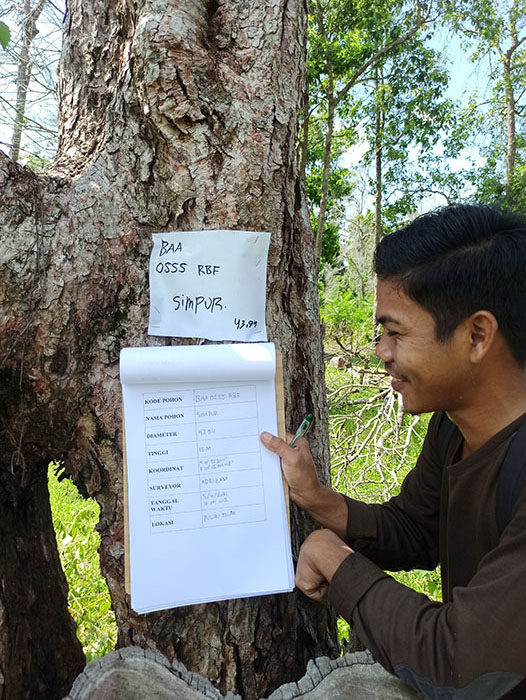 BAA
OSSS RBF
SIMPUR.
43.99
KODE POHON BAA OSSS RBF
NAMA POHON SIMPUR
DIAMETER
TINGGI 15 M
KOORDINAT
SURVEYOR
TANGGAL
WAKTU
LOKASI